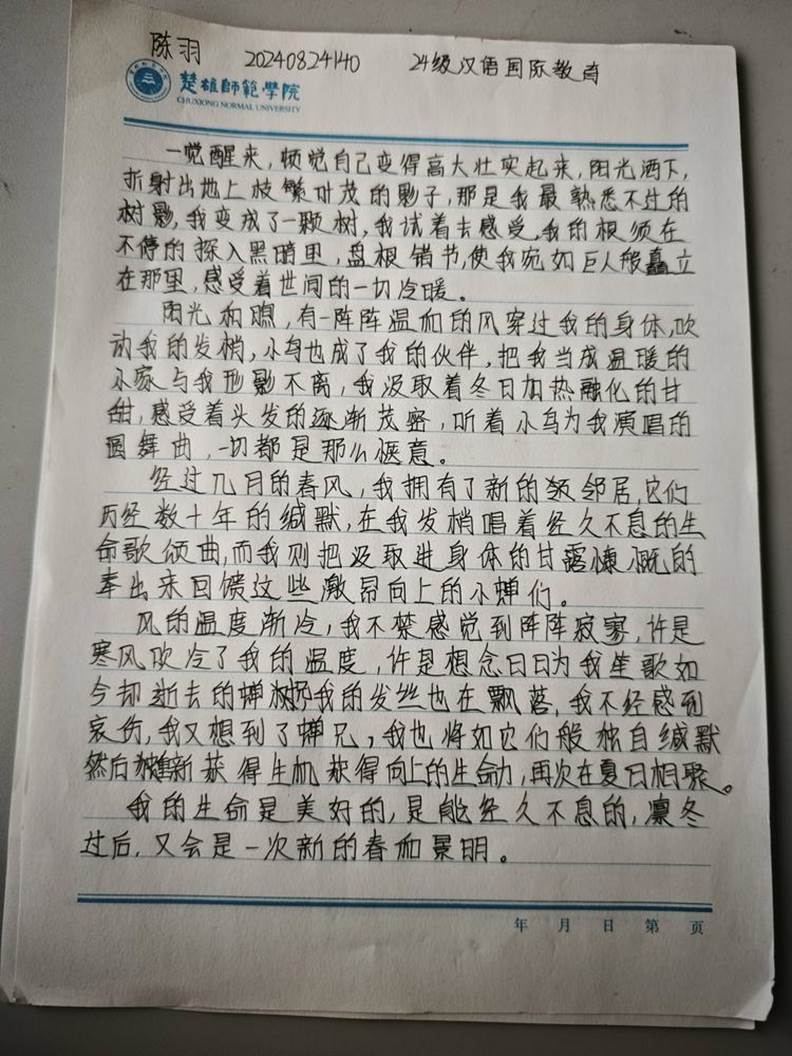 陈羽 20240824140 24级汉语国际教育
楚雄師範學院
CHUXIONG NORMAL UNIVERSITY
一觉醒来，顿觉自己变得高大壮实起来，阳光洒下，
折射出地上枝繁叶茂的影子，那是我最熟悉不过的
树影，我变成了一颗树，我试着去感受，我的根须在
不停的探入黑暗里，盘根错节，使我宛如巨人般矗立
在那里，感受着世间的一切冷暖。
阳光和曛，有一阵阵温和的风穿过我的身体，吹
动我的发梢，小鸟也成了我的伙伴，把我当成温暖的
小家与我形影不离，我汲取着冬日加热融化的甘
甜，感受着头发的逐渐茂密，听着小鸟为我演唱的
圆舞曲，一切都是那么惬意。
经过几月的春风，我拥有了新的邻居，它们
历经数十年的缄默，在我发梢唱着经久不息的生
命歌颂曲，而我则把汲取进身体的甘露慷慨的
奉出来回馈这些激昂向上的小蝉们。
风的温度渐冷，我不禁感觉到阵阵寂寥，许是
寒风吹冷了我的温度，许是想念日日为我笙歌如
今却逝去的蝉，我的发丝也在飘落，我不经感到
哀伤，我又想到了蝉兄，我也将如它们般独自缄默
然后重新获得生机获得向上的生命力，再次在夏日相聚。
我的生命是美好的，是能经久不息的，凛冬
过后，又会是一次新的春和景明。
年 月 日 第 页